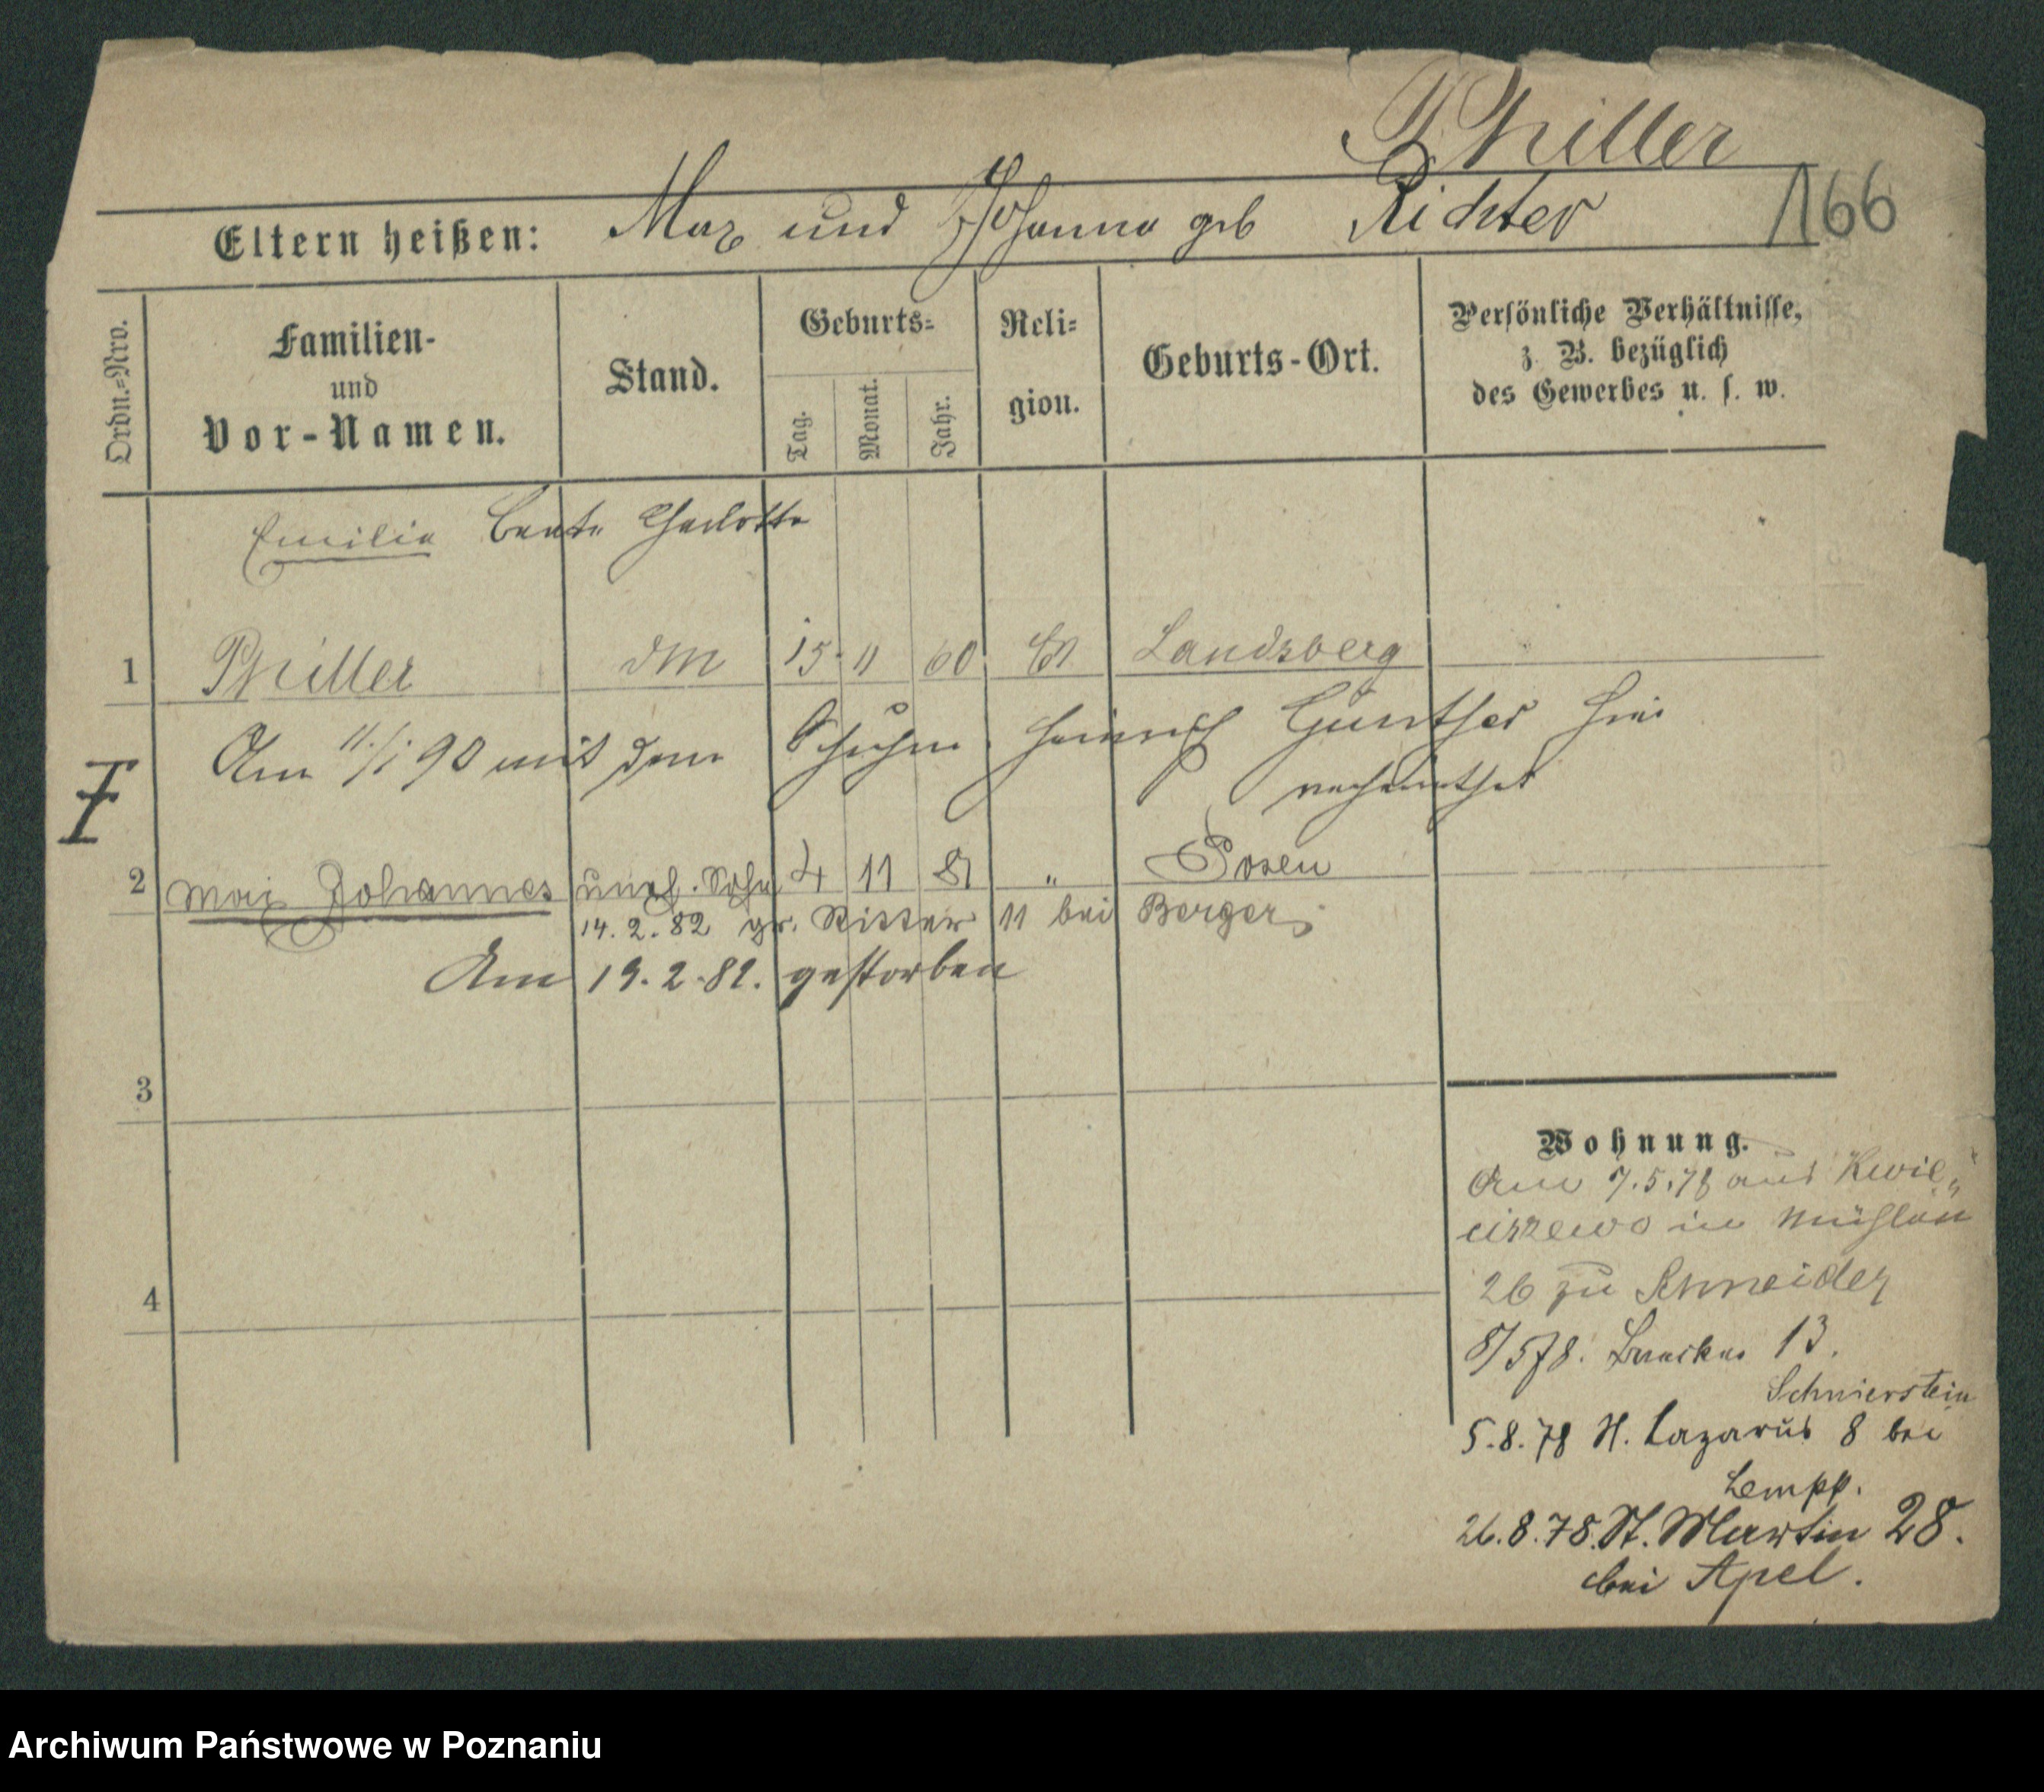 Philler
166
Eltern heißen: Max und Johanna geb Richter
Ordn.=Nro.
Familien-
und
Vor-Namen.
Stand.
Geburts=
Tag.
Monat.
Jahr.
Reli=
gion.
Geburts-Ort.
Persönliche Verhältnisse,
z. B. bezüglich
des Gewerbes u. s. w.
Emilie Beate Charlotte
1 Philler dM 15 11 60 Ev Landsberg
Am 11/1 90 mit dem Schuhm. Heinrich Günther hier
verheirathet
2 Max Johannes unehl. Sohn 4 11 81 " Posen
14. 2. 82 gr. Ritter 11 bei Berger
Am 19. 2. 82. gestorben
3
4
Wohnung.
Am 7.5.78 aus Kwie„
ciszewo in Mühlen
26 zu Schneider
8/5 78. 13.
Schnierstein
5.8.78 St. Lazarus 8 bei
Lempp.
26.8.78. St. Martin 28.
bei Apel.
Archiwum Państwowe w Poznaniu